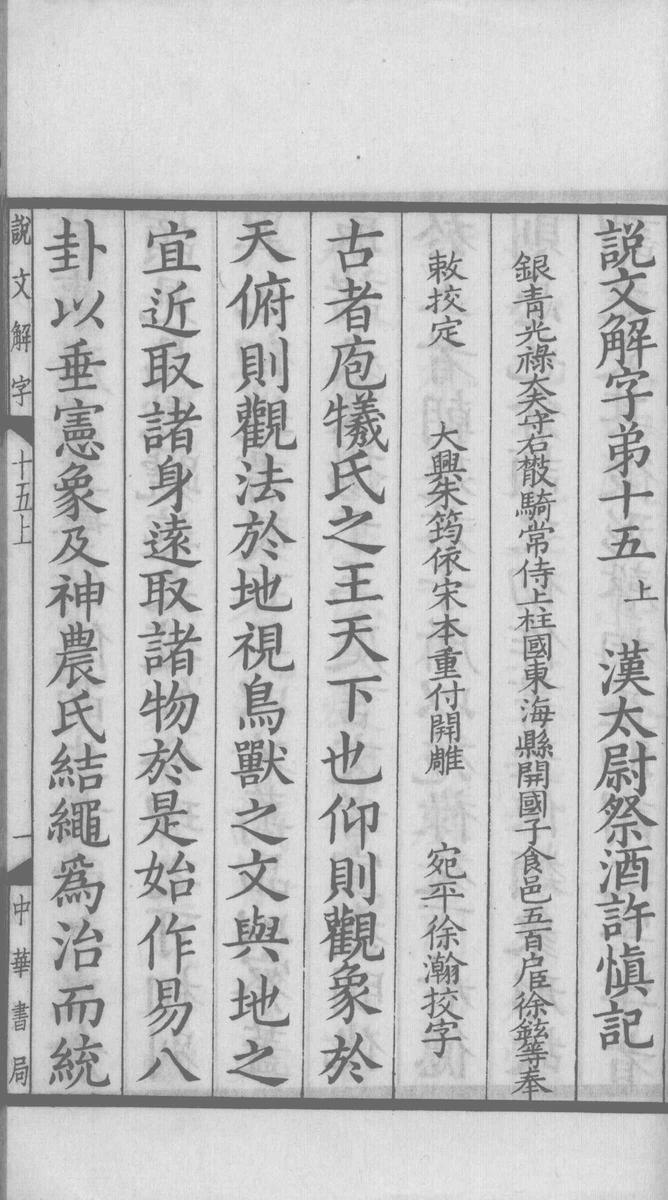 說文解字弟十五上　漢太尉祭酒許愼記
銀青光祿大夫守右散騎常侍上柱國東海縣開國子食邑五百户臣徐鉉等奉
敕挍定　大興朱筠依宋本重付開雕　宛平徐瀚挍字
古者庖犧氏之王天下也仰則觀象於
天俯則觀法於地視鳥獸之文與地之
宜近取諸身遠取諸物於是始作易八
卦以垂憲象及神農氏結繩爲治而統
說文解字　十五上　一　中華書局